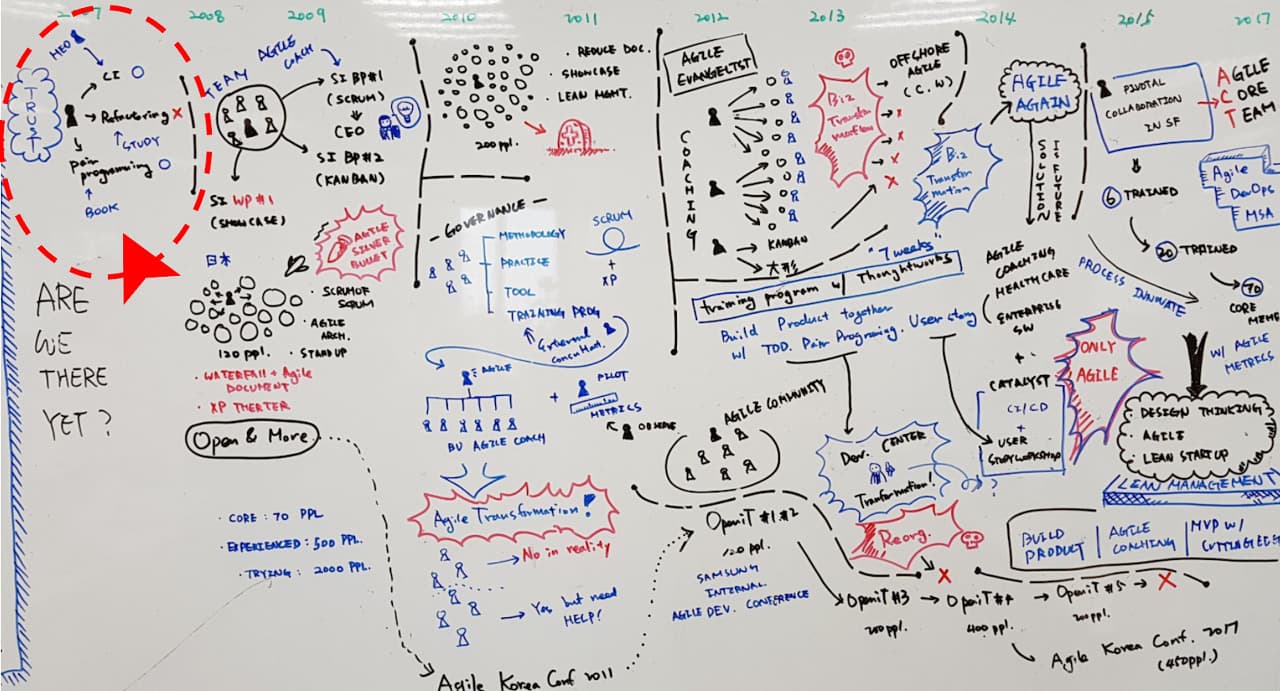 2007 2008 2009 2010 2011 2012 2013 2014 2015 2017
HEO
CI
TRUST
Refactoring X
STUDY
pair
programming
BOOK
ARE
WE
THERE
YET?
TEAM
AGILE
COACH
SI BP#1
(SCRUM)
CEO
SI BP#2
(KANBAN)
SI WP#1
(SHOWCASE)
AGILE
SILVER
BULLET
日本
SCRUM OF
SCRUM
AGILE
ARCH.
STAND UP
120 ppl.
WATERFALL + Agile
DOCUMENT
XP THEATER
Open & More
CORE : 70 PPL
EXPERIENCED : 500 PPL.
TRYING : 2000 PPL.
REDUCE DOC.
SHOWCASE
LEAN MGMT.
200 ppl.
GOVERNANCE
METHODOLOGY
PRACTICE
TOOL
TRAINING PROG
SCRUM
+
XP
External
Consultant.
AGILE
BU AGILE COACH
+
PILOT
METRICS
Agile Transformation!
No in reality
Yes but need
HELP!
Agile Korea Conf 2011
AGILE
EVANGELIST
COACHING
KANBAN
大形
Biz
X
X
X
X
OFFSHORE
AGILE
(C.W)
Biz
"7 weeks"
training program w/ Thoughtworks
Build Product together
w/ TDD. Pair Programing. User story
AGILE COMMUNITY
OpeniT #1.#2
120 ppl.
SAMSUNG
INTERNAL
AGILE DEV. CONFERENCE
Dev. CENTER
Tranformation!
?
Reorg.
X
OpeniT #3
200 ppl.
OpeniT #4
400 ppl.
OpeniT #5
200 ppl.
X
Agile Korea Conf. 2017
(450ppl.)
AGILE
AGAIN
SOLUTION
IS FUTURE
AGILE
COACHING
HEALTHCARE
ENTERPRISE
SW
+
CATALYST
CI/CD
+
USER
STUDY WORKSHOP
ONLY
AGILE
PROCESS INNOVATE
PIVOTAL
COLLABORATION
IN SF
AGILE
CORE
TEAM
6 TRAINED
20 TRAINED
70
CORE
Agile
DevOps
MSA
W/ AGILE
METRICS
DESIGN THINKING
AGILE
LEAN STARTUP
LEAN MANAGEMENT
BUILD
PRODUCT
AGILE
COACHING
MVP W/